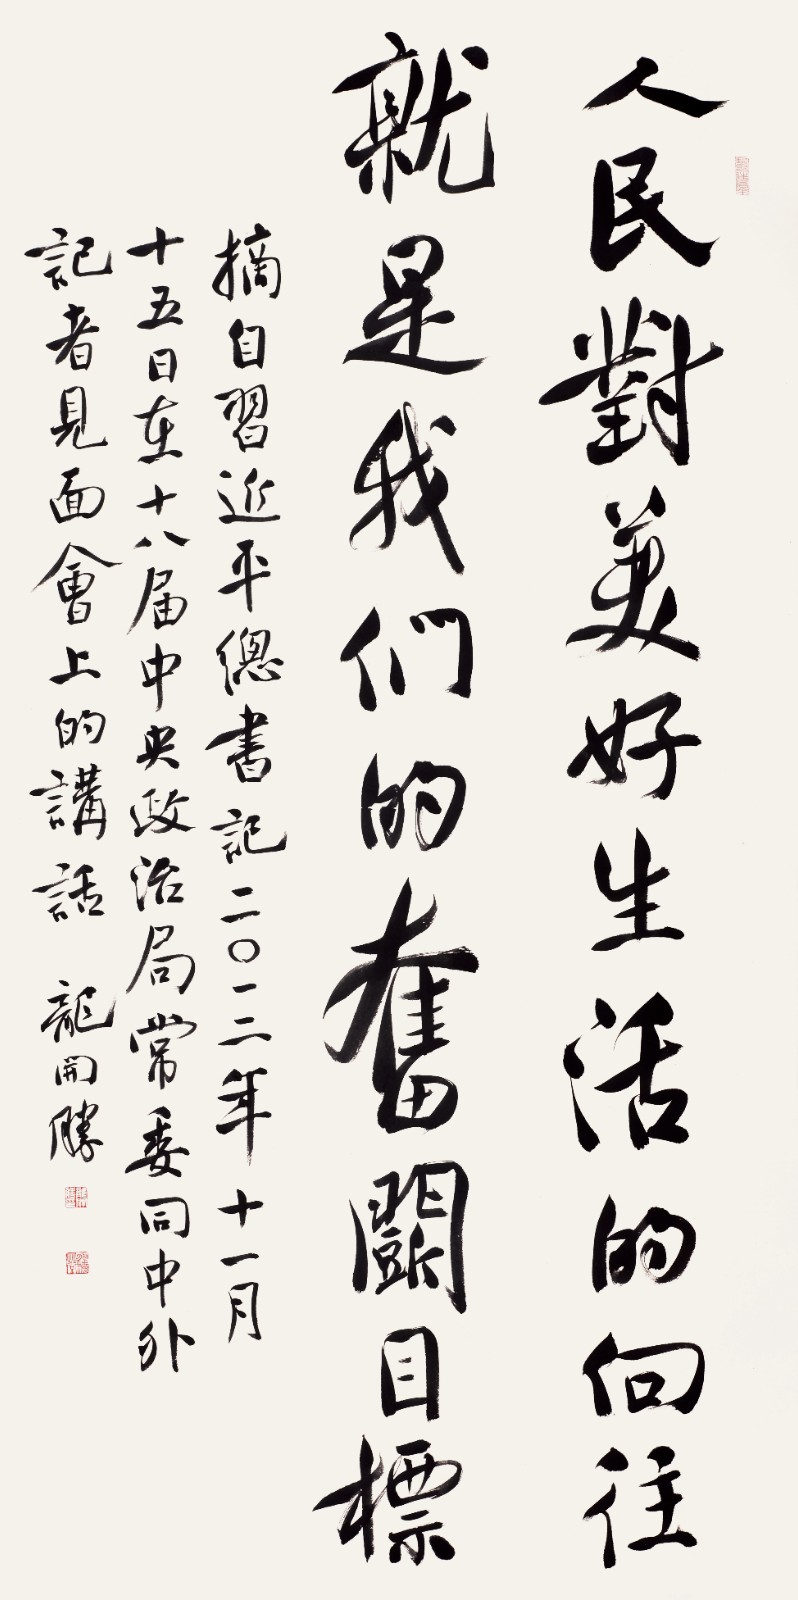 人民對美好生活的向往
就是我们的奮鬭目標
摘自習近平總書記二〇一二年十一月
十五日在十八届中央政治局常委同中外
記者見面會上的講話 龍開勝